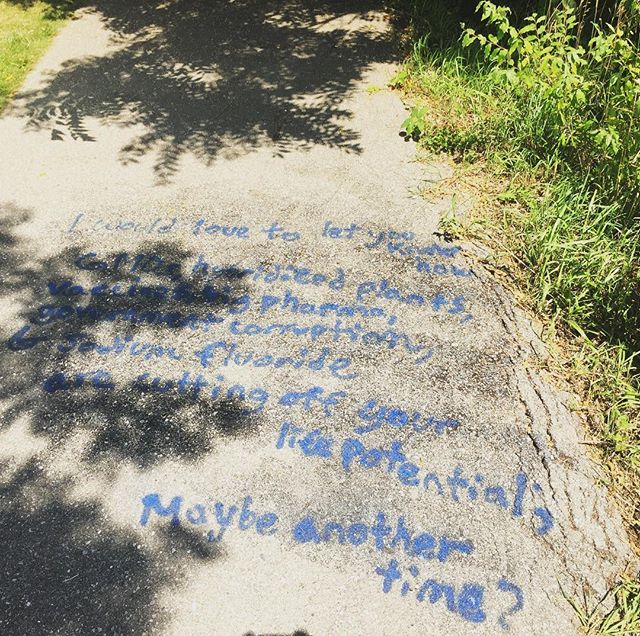 I would love to let you
know
how
hybridized plants,
vaccines and pharma,
government corruption,
& sodium fluoride
are cutting off your
life potential;
Maybe another
time?